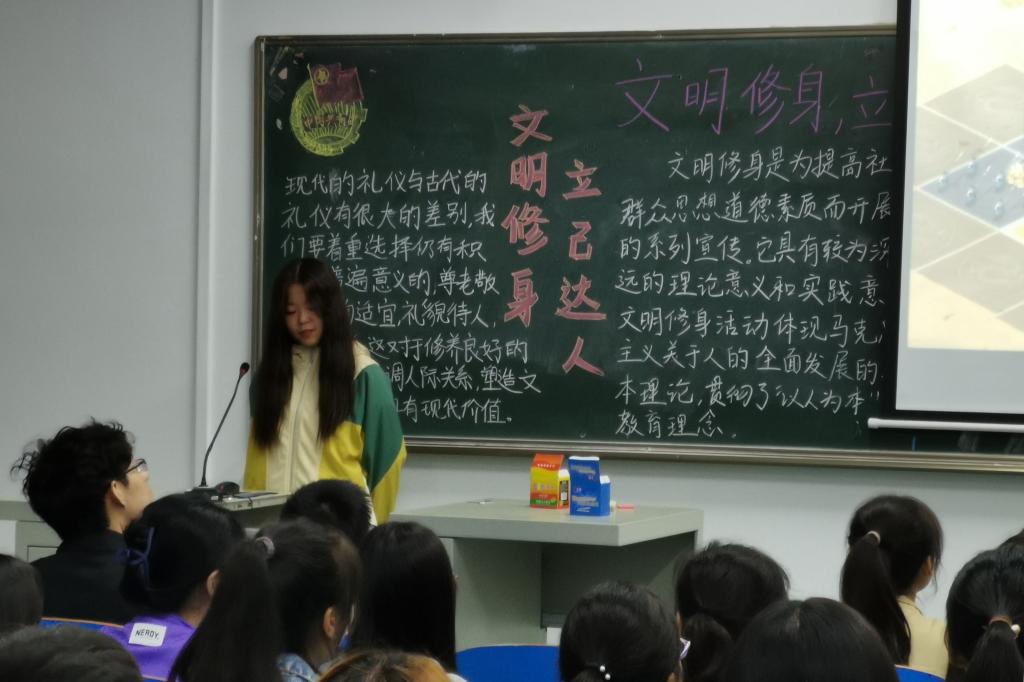 现代的礼仪与古代的
礼仪有很大的差别,我
们要着重选择仍有积
遍意义的,尊老敬
适宜,礼貌待人,
这对于修养良好的
调人际关系,塑造文
有现代价值。
文明修身
立己达人
文明修身,立
文明修身是为提高社
群众思想道德素质而开展
的系列宣传。它具有较为深
远的理论意义和实践意
文明修身活动体现马克
主义关于人的全面发展的
本理论,贯彻了以人为本
教育理念。
NERDY.